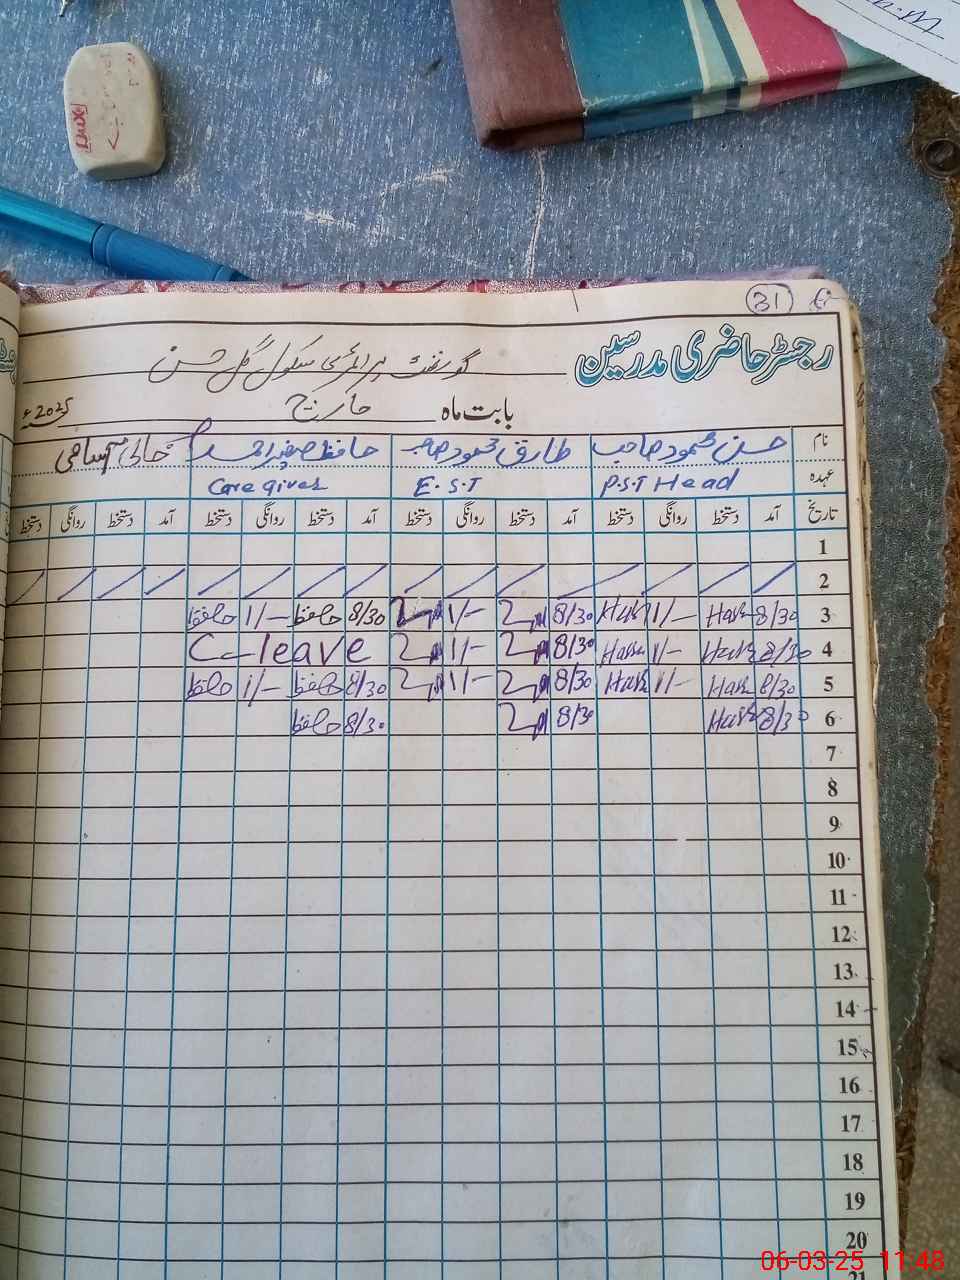 LUX
31
رجسٹر حاضری مدرسین گورنمنٹ پرائمری سکول گل حسن
بابت ماہ مارچ 2025ء
نام حسن محمود صاحب طارق محمود صاحب حافظ صغیر احمد خالی آسامی
عہدہ P.S.T Head E.S.T Care giver
تاریخ آمد دستخط روانگی دستخط آمد دستخط روانگی دستخط آمد دستخط روانگی دستخط آمد دستخط روانگی دستخط
1
2
3 8/30 1/- 8/30 1/- 8/30 حافظ 1/- حافظ
4 8/30 1/- 8/30 1/- C-leave
5 8/30 1/- 8/30 1/- 8/30 حافظ 1/- حافظ
6 8/30 8/30 8/30 حافظ
7
8
9
10
11
12
13
14
15
16
17
18
19
20
21
06-03-25 11:48